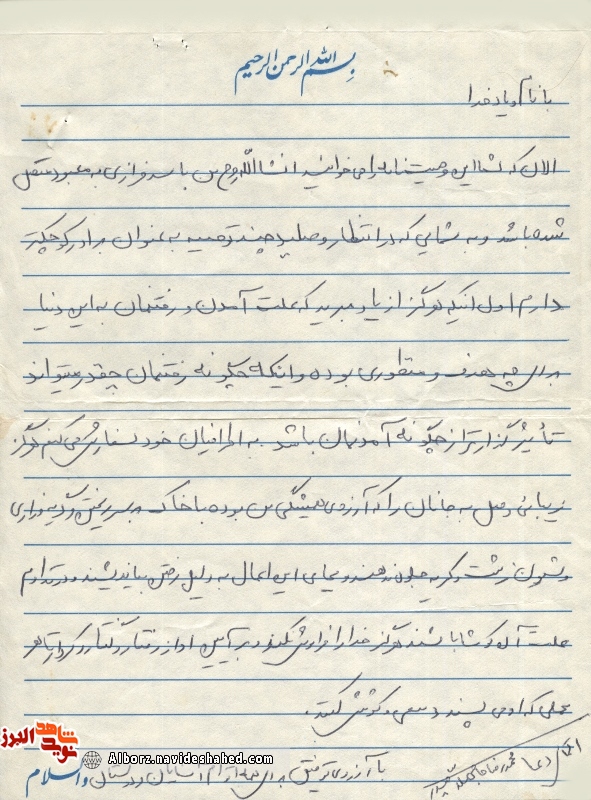 بسم الله الرحمن الرحیم
با نام و یاد خدا
الان که شما این وصیتنامه را می‌خوانید انشاالله روح من با سرفرازی به معبود متصل
شده باشد و به شمایی که در انتظار وصلید چند توصیه به عنوان برادر کوچکتر
دارم اول اینکه هرگز از یاد مبرید که علت آمدن و رفتنمان به این دنیا
برای چه هدف و منظوری بوده و اینکه چگونه رفتنمان چقدر میتواند
تأثیرگذارتر از چگونه آمدنمان باشد به اطرافیان خود سفارش می‌کنم هرگز
زیبائی وصل به جانان را که آرزوی همیشگی من بوده با خاک بر سر ریختن و گریه و زاری
و شیون زشت و کریه جلوه ندهند و بجای این اعمال به دلیل رفتن بیاندیشند و در تداوم
علت آن کوشا باشند هرگز خدا را فراموش نکنید و بر آیین او از رفتار و گفتار و کردار تا هر
عملی که او می پسندد سعی و کوشش کنید.
با آرزوی توفیق برای همه آشنایان و دوستان والسلام
التماس دعا محمدرضا
شاهد
نوید البرز
Alborz.navideshahed.com